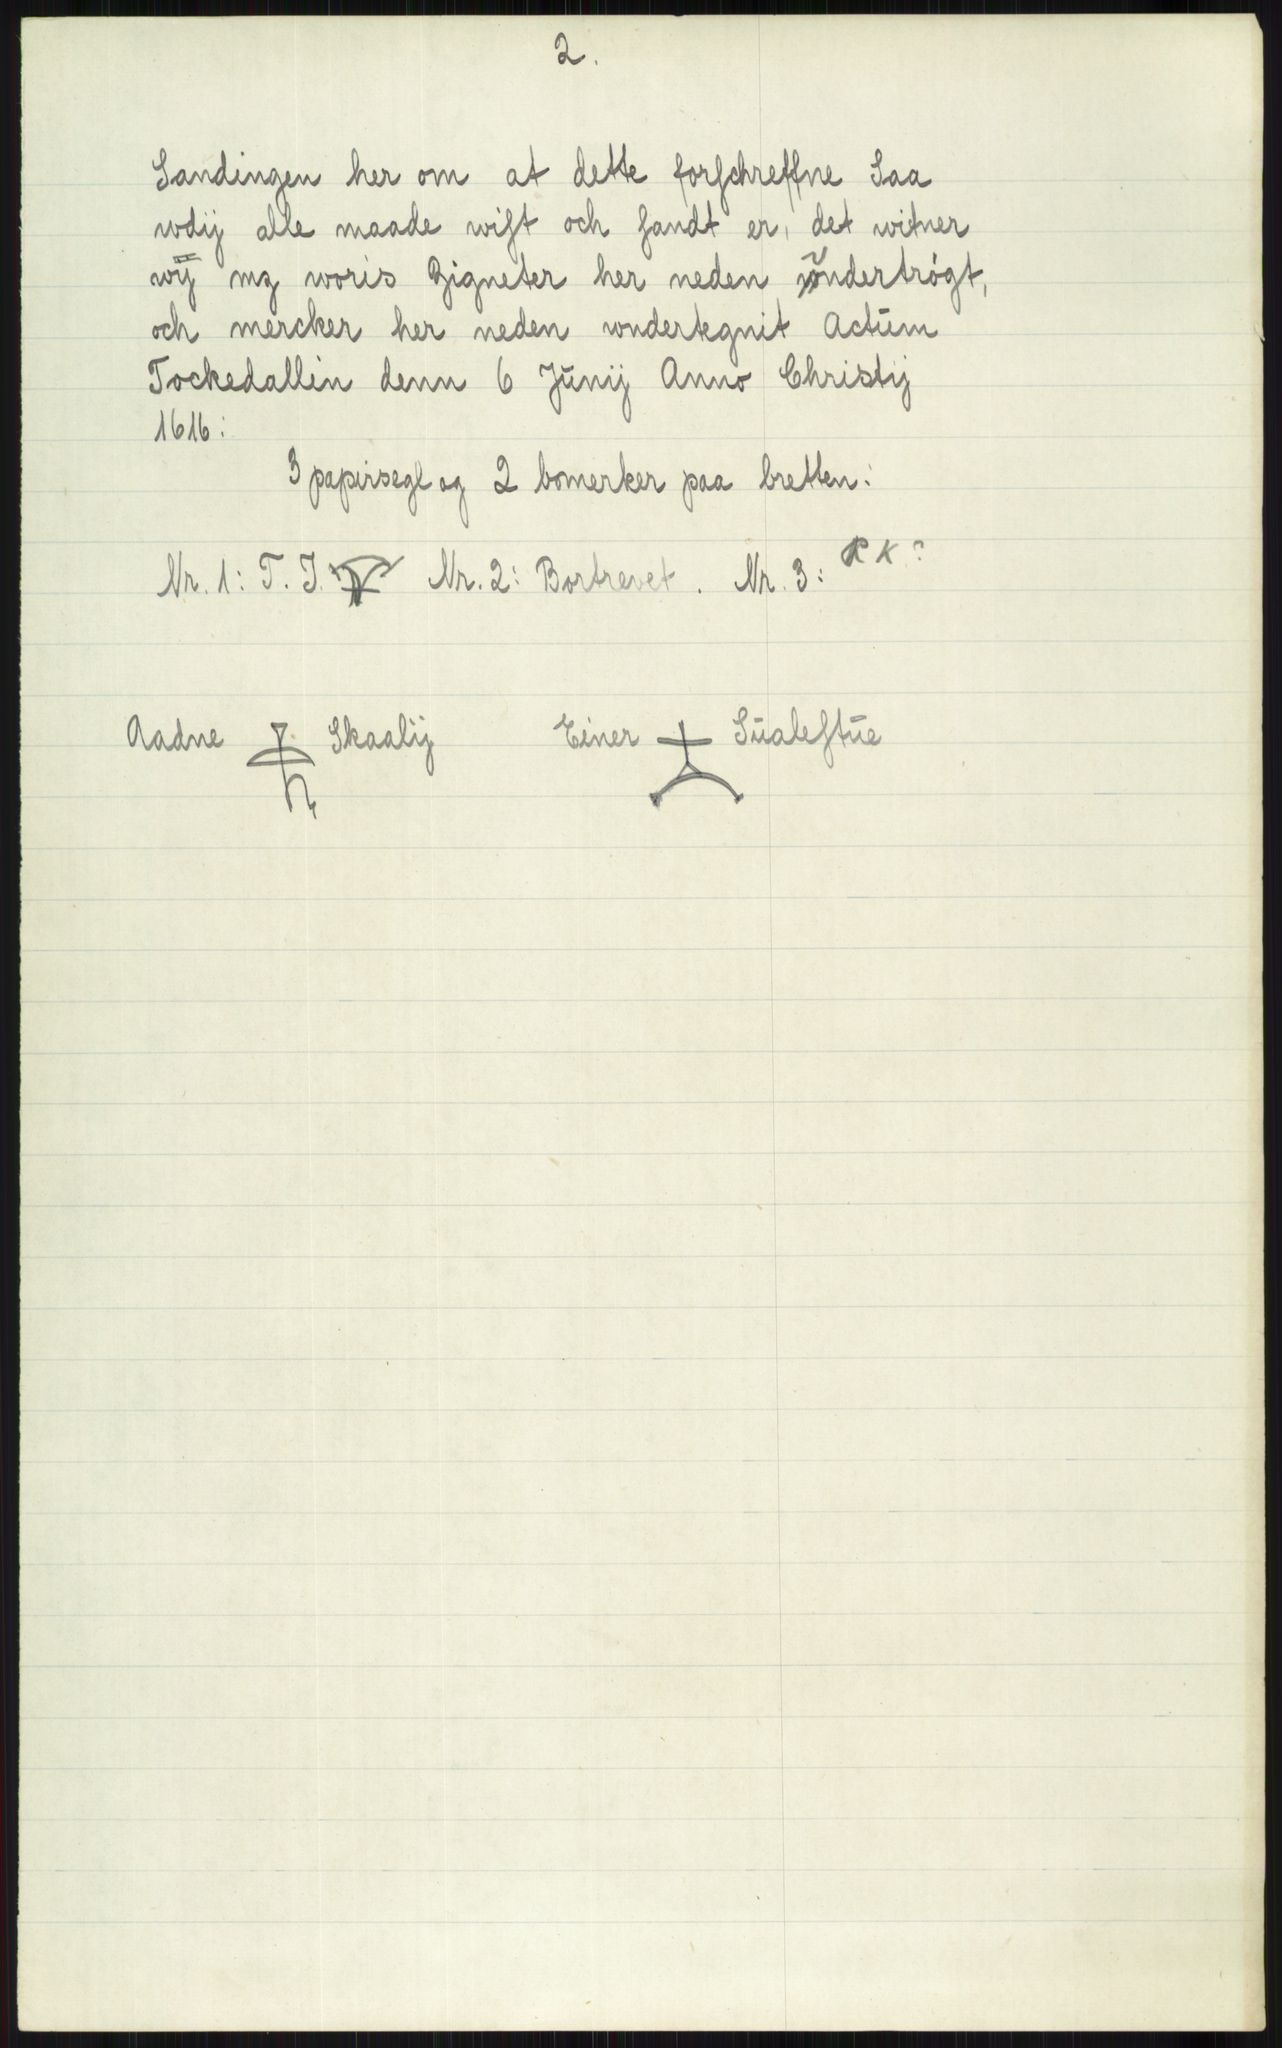 2.
Sandingen her om at dette forſchreffne Saa
wdij alle maade wiſt och ſandt er, det witner
wij mz woris Zigneter her neden wndertrögt,
och mercker her neden wndertegnit Actūm
Tockedallin denn 6 Jūnij Anno Christij
1616:
3 papirsegl og 2 bomerker paa bretten:
Nr. 1: T. J. Nr. 2: Bortrevet. Nr. 3: R K?
Aadne Skaalij Einer Sūaleſtūe